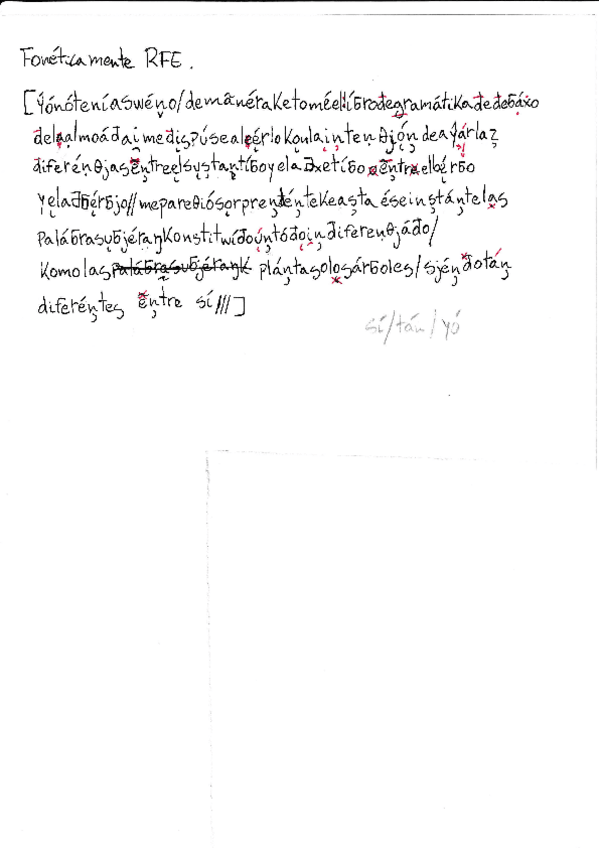 Fonéticamente RFE.
[ŷónóteníaswéŋo/demãnéraketoméelliƀrođegramátikađeđeƀáxo
đelaalmoáđai̯međis̬púsealeérlokou̯laintenθjóndeaŷárlaz
diferénθjasẽntreelsustantíƀoyelađxetíƀoẽntreelbérƀo
yelađƀérƀjo//mepareθiósorprendéntekeastaéseinstántelas
paláƀrasuƀjéraŋkonstitwíđoúntóđoindiferenθjáđo/
komolas plántasolosárboles/sjénđotán
diferéntes ẽntre sí///]
sí/tán/yó